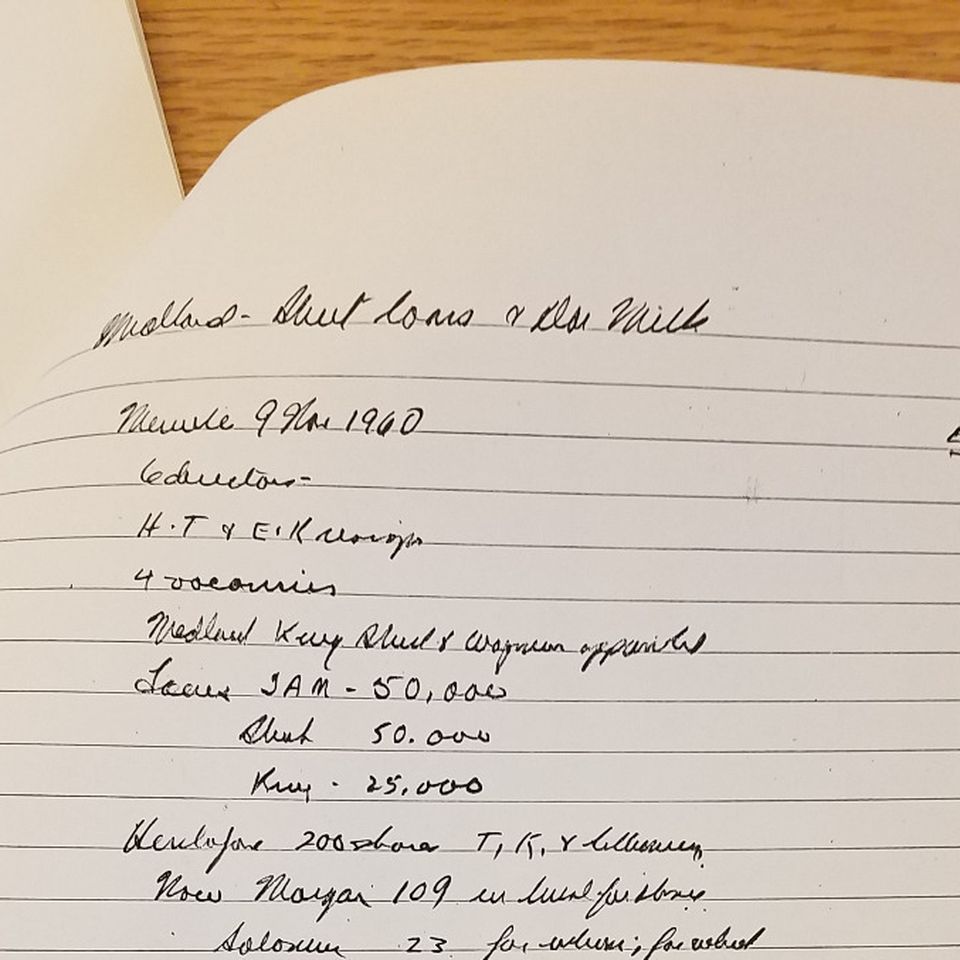 Medland - Short loans & Dae Milk
Minute 9 Nov 1960
6 directors -
H.T & E.K resign
4 vacancies
Medland King Short & Wagman appointed
Loans JAM - 50,000
Short 50.000
King - 25,000
Heretofore 200 shares T, K, &
Now Morgan 109 in trust for
Solomon 23 for whom; for what